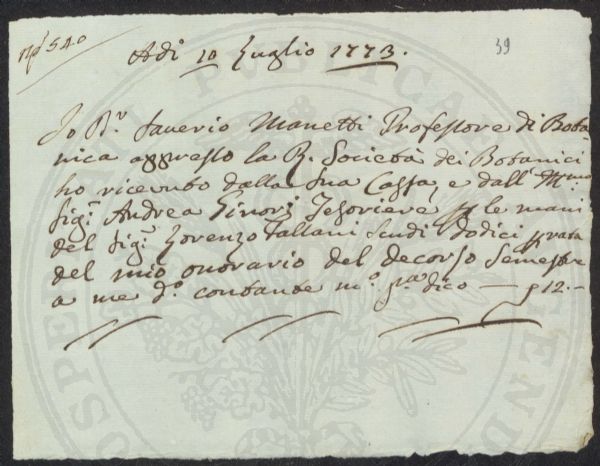 N.º 540
Adì 10 Luglio 1773.
39
Io D.r Saverio Manetti Professore di Bota=
nica appresso la R. Società dei Botanici
ho ricevuto dalla sua Cassa, e dall' Ill.mo
Sig.r Andrea Ginori Tesoriere p le mani
del Sig.r Lorenzo Tallani Scudi Dodici p rata
del mio onorario del decorso Semestre
a me d.o contante m.o p.a dico — 12.—
PUBLICA
PROSPER